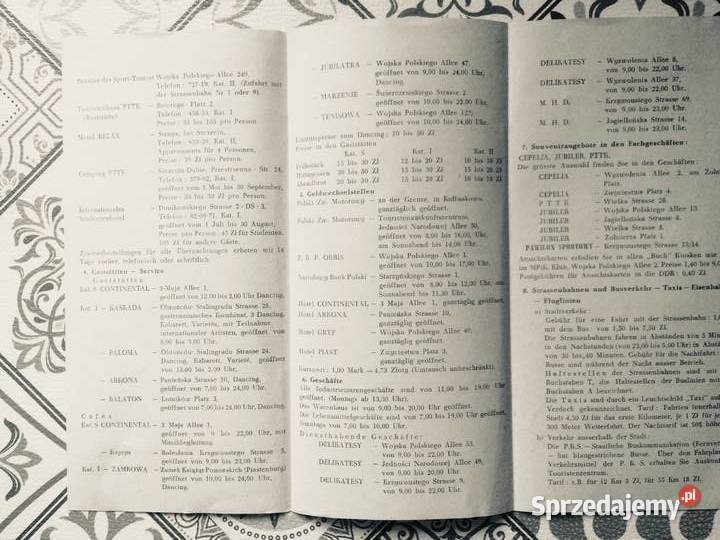 Bureau des Sport-Tourist Wojska Polskiego Allee 249.
Telefon: 727-19, Kat. II (Zufahrt mit
der Strassenbahn Nr 1 oder 9)
PTTK – Batorego Platz 2,
Telefon: 456-33, Kat. I
Preise: 35 bis 105 pro Person
Motel RELAX – Struga, bei Szczecin,
Kat. II,
Appartements für 4 Personen,
Preise: 30 Zl pro Person
Camping PTTK – Szczecin-Dąbie, Przestrzenna – Str. 24,
Telefon: Kat. I,
geöffnet vom 1 Mai bis 30 September,
Preise: 24 bis 30 Zl pro Person
Internationales – Dunikowskiego Strasse 2 - DS - 3,
Studentenhotel Telefon: Kat. I,
geöffnet vom 1 Juli bis 30 August,
Preise pro Person – 45 Zl für Studenten,
105 Zl für andere Gäste.
Zimmerbestellungen für alle Übernachtungen erbeten wir 14
Tage vorher, telefonisch oder schriftlich
4. Gaststätten – Service
Gaststätten
Kat. S CONTINENTAL – 3-Maja Allee 1,
geöffnet von 12,00 bis 2,00 Uhr Dancing.
Kat. I – KASKADA – Obrońców Stalingradu Strasse 25,
gastronomisches Kombinat, 3 Dancing,
Kabarett, Varieté, mit Teilnahme
internationaler Artisten, geöffnet von 9,00
– PALOMA – Obrońców Stalingradu Strasse 24,
Dancing, Kabarett, Varieté, geöffnet
von 13.00 bis 2.00 Uhr.
– ARKONA – Panieńska Strasse 10, Dancing,
geöffnet von 7,00 bis 24,00 Uhr.
– BALATON – Lotników Platz 3,
geöffnet von 7,00 bis 24,00 Uhr, Dancing.
Cafés
Kat. S CONTINENTAL – 3 Maja Allee 1,
geöffnet von 9 bis 22,00 Uhr, mit
Musikbegleitung,
– Bolesława Krzywoustego Strasse
geöffnet von 9,00 bis 23,00 Uhr,
Kat. I – ZAMKOWA – Zamek Książąt Pomorskich (Piastenburg)
geöffnet von 10,00 bis 24,00 Uhr,
Dancing.
JUBILATKA – Wojska Polskiego Allee 47,
geöffnet von 9,00 bis 24,00 Uhr,
Dancing.
MARZENIE – Świerczewskiego Strasse 2
geöffnet von 10,00 bis 22,00 Uhr.
TENISOWA – Wojska Polskiego Allee 127,
geöffnet von 10,00 bis 24,00 Uhr.
Eintrittspreise zum Dancing: 10 bis 30 Zl
Preise in den Gaststätten
Kat S Kat. I Kat. II
Frühstück 15 bis 30 Zl 12 bis 20 Zl 10 bis 18 Zl
Mittagessen 20 bis 50 Zl 15 bis 30 Zl
Abendbrot 20 bis 50 Zl 15 bis 20 Zl 10 bis 15 Zl
Geldwechselstellen
Polski Zw. Motorowy – an der Grenze, in Kołbaskowo,
ganztägig geöffnet.
Polski Zw. Motorowy – Touristenauskunftszentrum,
Jedności Narodowej Allee 50,
geöffnet von 8,00 bis 16,00 Uhr,
am Sonnabend bis 14,00 Uhr.
P. B. P. ORBIS – Wojska Polskiego Allee 1,
geöffnet von 9,00 bis 18,00 Uhr.
Narodowy Bank Polski – Starzyńskiego Strasse 1,
geöffnet von 8,00 bis 12,00 Uhr, am
Sonnabend bis 11,30 Uhr.
Hotel CONTINENTAL – 3 Maja Allee 1, ganztägig geöffnet.
Hotel ARKONA – Panieńska Strasse 10,
ganztägig geöffnet.
Hotel GRYF – Wojska Polskiego Allee 49,
ganztägig geöffnet.
Hotel PIAST – Zwycięstwa Platz 3,
ganztägig geöffnet.
Kurswert: 1,00 Mark – 4,73 Złoty (Umtausch unbeschränkt).
6. Geschäfte
Alle Industriewarengeschäfte sind von 11,00 bis 19,00 Uhr
geöffnet. (Montags ab 13,00 Uhr).
Das Warenhaus ist von 9,00 bis 20,00 Uhr geöffnet.
Die Lebensmittelgeschäfte sind von 7,00 bis 19,00 Uhr geöffnet,
Sonntags von 7,00 bis 10,00 Uhr.
Diensthabende Geschäfte:
DELIKATESY – Wojska Polskiego Allee 53,
von 9,00 bis 22,00 Uhr.
DELIKATESY – Jedności Narodowej Allee 49,
von 9,00 bis 20,00 Uhr.
DELIKATESY – Krzywoustego Strasse 9,
von 9,00 bis 22,00 Uhr.
DELIKATESY – Wyzwolenia Allee 8,
von 9,00 bis 22,00 Uhr.
DELIKATESY – Wyzwolenia Allee 37,
von 9,00 bis 22,00 Uhr.
M. H. D. – Krzywoustego Strasse 69,
von 9,00 bis 23,00 Uhr.
M. H. D. – Jagiellońska Strasse 14,
von 9,00 bis 22,00 Uhr.
7. Souvenirangebote in den Fachgeschäften:
CEPELIA, JUBILER, PTTK.
Die grösste Auswahl finden Sie in den Geschäften:
CEPELIA – Wyzwolenia Allee 2, am Żoln
Platz.
CEPELIA – Zwycięstwa Platz 4.
P T T K – Wielka Strasse 28.
JUBILER – Wojska Polskiego Allee 15
JUBILER – Jagiellońska Strasse 6.
JUBILER – Wielka Strasse
JUBILER – Żołnierza Platz 1.
PAWILON SPORTOWY – Krzywoustego Strasse 13/14.
Ansichtskarten erhalten Sie in allen „Ruch" Kiosken wie
im MPiK Klub, Wojska Polskiego Allee 2 Preise 1,40 bis 9,0
Postgebühren für Ansichtskarten in die DDR: 0,40 Zl.
8. Strassenbahnen und Busverkehr – Taxis – Eisenbah
– Fluglinien
a) Stadtverkehr:
Gebühr für eine Fahrt mit der Strassenbahn: 1,0
mit dem Bus: von 1,50 bis 7,50 Zl.
Die Strassenbahnen fahren in Abständen von 5 Min
in den Nachtstunden (von 23,00 bis 5,00 Uhr) in Abstän
von 30 bis 40 Minuten. Gebühr für die Nachtfahrt
Busse sind während der Nacht ausser Betrieb.
Haltestellen der Strassenbahnen sind mit
Buchstaben T, die Haltestellen der Buslinien mit
Buchstaben A bezeichnet.
Die Taxis sind durch ein Leuchtschild „Taxi" auf
Verdeck gekennzeichnet. Tarif: Fahrten innerhalb
Stadt 4,50 Zl für das erste Kilometer, je 1 Zl für je
300 Meter Weiterfahrt. Der Nachttarif ist 50% höher
b) Verkehr ausserhalb der Stadt:
Die P.K.S. – Staatliche Buskommunikation (Fernver
– hat blaugestrichene Busse. Über den Fahrplan
Verkehrsmittel der P.K.S erhalten Sie Auskunft
Touristenzentrum.
Tarif: z.B. für 12 Km 5 Zl, für 55 Km 18 Zl.
Sprzedajemy.pl